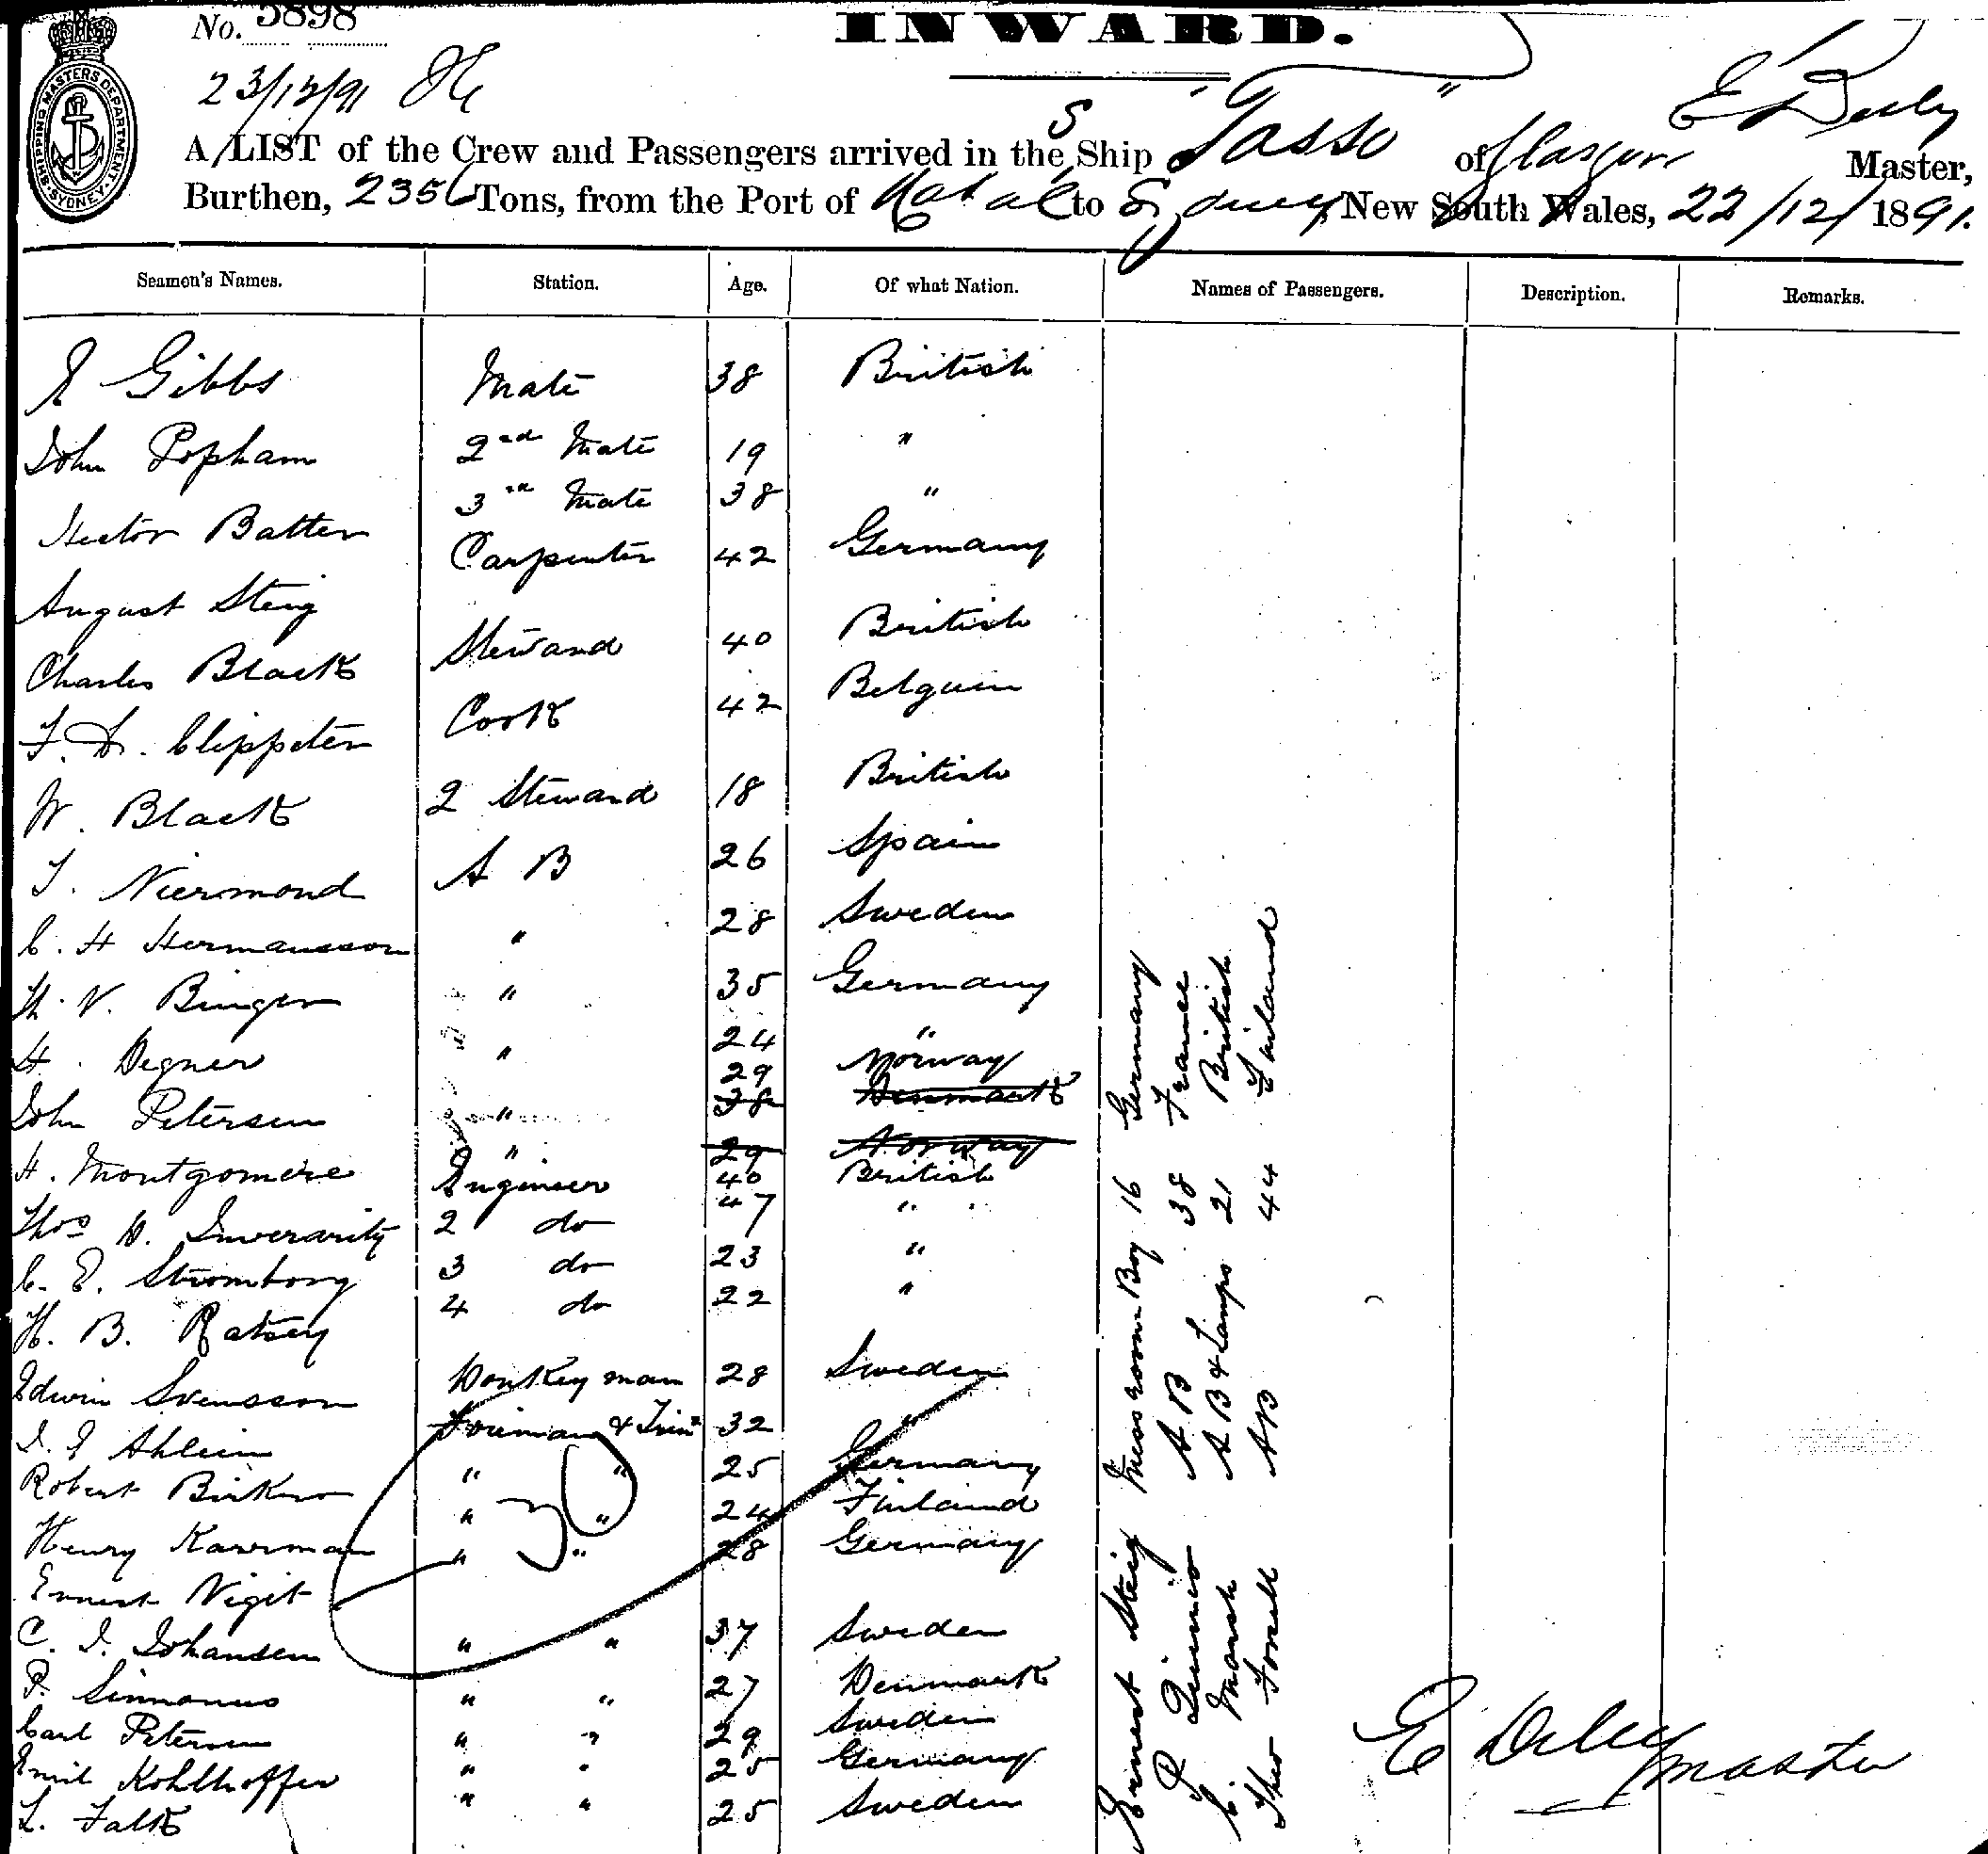 No. 5898
INWARD.
23/12/91
SHIPPING MASTERS DEPARTMENT. SYDNEY.
A LIST of the Crew and Passengers arrived in the S Ship "Tasso" of Glasgow E Master,
Burthen, 2356 Tons, from the Port of Natal to Sydney, New South Wales, 22/12/1891.
Seamen's Names. Station. Age. Of what Nation. Names of Passengers. Description. Remarks.
Gibbs Mate 38 British
John Popham 2nd Mate 19 "
Hector Batten 3rd Mate 38 "
August Steig Carpenter 42 Germany
Charles Black Steward 40 British
F. D. Clippeten Cook 42 Belguim
W. Black 2 Steward 18 British
T. Niermond A B 26 Spain
C. H Hermansson " 28 Sweden
H. V. Binger " 35 Germany
H. Degner " 24 "
John Petersen " 29 Norway
38 Denmark
H. Montgomere " 29 Norway
Thos D. Inverarity Engineer 40 British
C. E. Stromborg 2 do 47 "
H. B. Ratsey 3 do 23 "
4 do 22 "
Edwin Svensson Donkeyman 28 Sweden
Ahlein Fireman & Trimr 32 "
Robert Birkner " " 25 Germany
Henry Karrman " " 24 Finland
Ernest Vigit " " 28 Germany
C. I. Johansen " " 37 Sweden
P. Simmonus " " 27 Denmark
Carl Petersen " " 29 Sweden
Emil Kohlhoffer " " 25 Germany
L. Falk " " 25 Sweden
Ernest Steig Mess room Boy 16 Germany
P A B 38 France
C. Marsh A B & Lamps 21 British
Theo Forsell AB 44 Finland
E Master